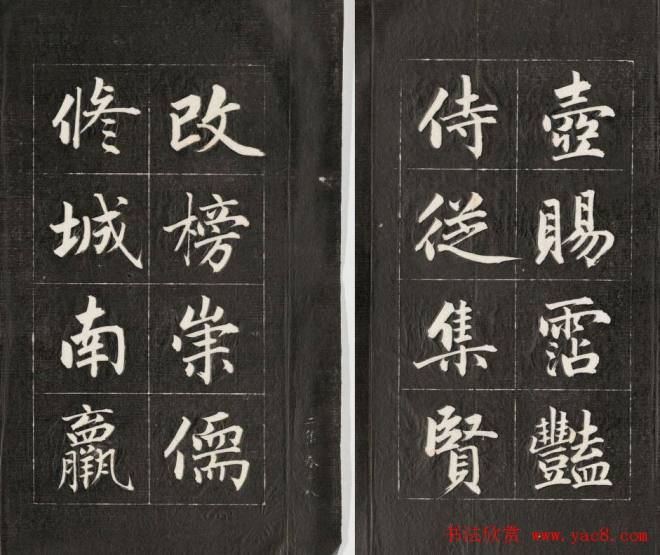 壺賜霑豔
侍從集賢
改榜崇儒
修城南羸
书法欣赏 www.yac8.com